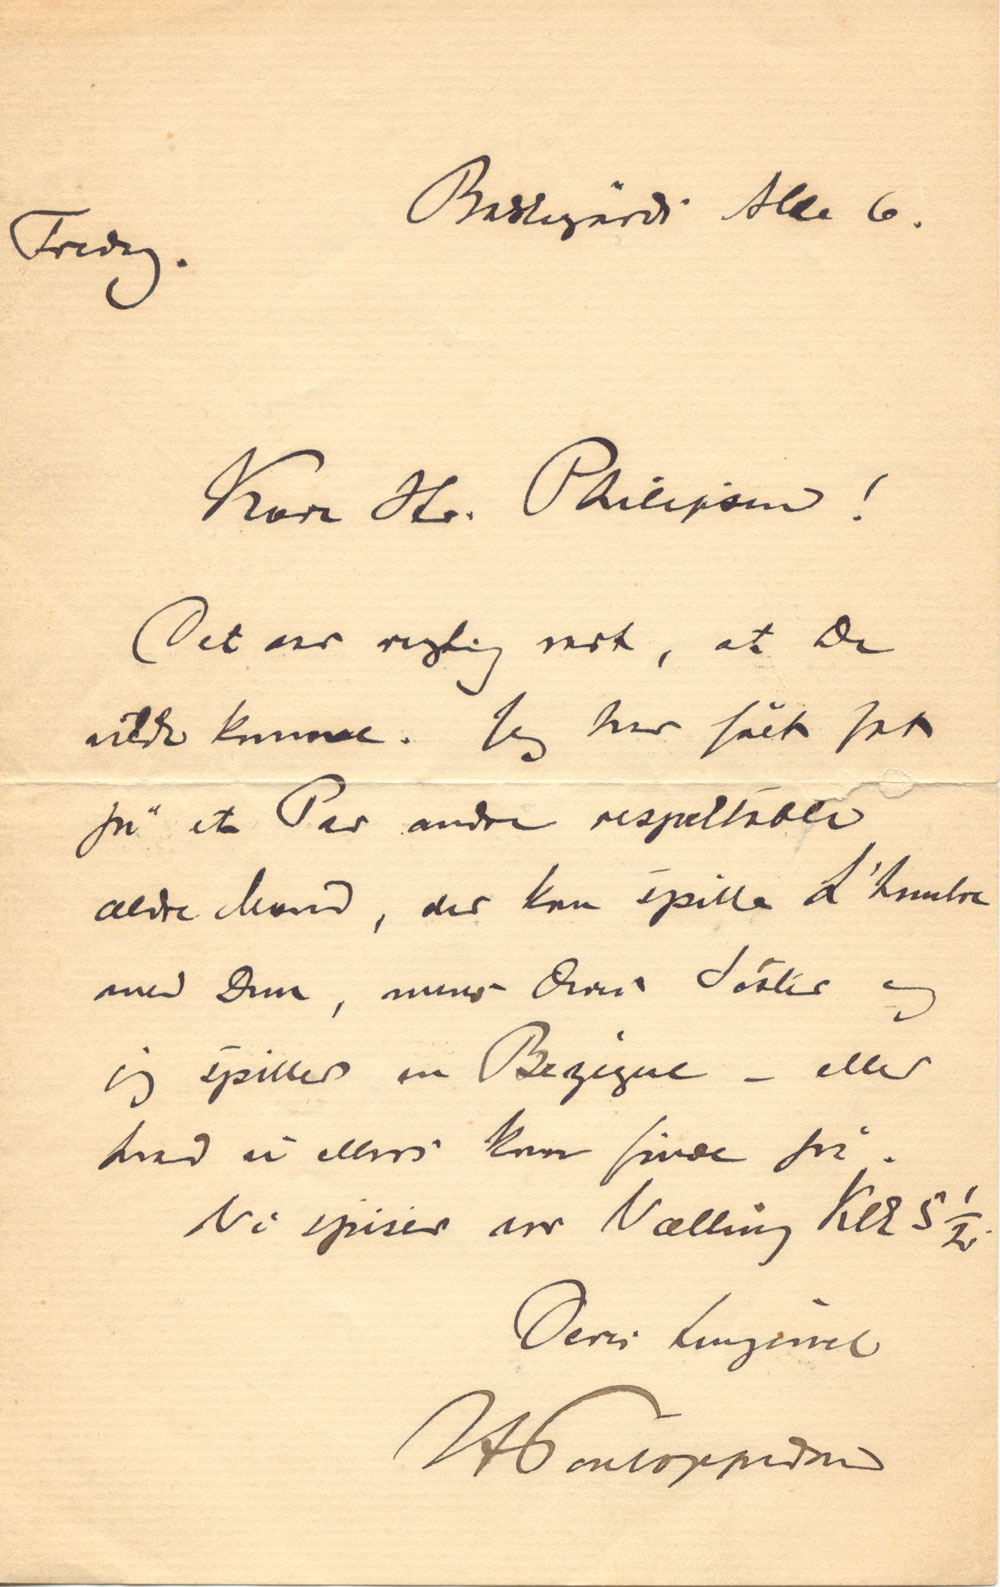 Bakkegårds Alle 6.
Fredag.
Kære Hr. Philipsen!
Det var rigtig rart, at De
vilde komme. Jeg har fået fat
på et Par andre respektable
ældre Mænd, der kan spille L'hombre
med Dem, mens Deres Söster og
jeg spiller en Bezigue – eller
hvad vi ellers kan finde på.
Vi spiser vor Vælling Kl 5 1/2.
Deres hengivne
H Pontoppidan